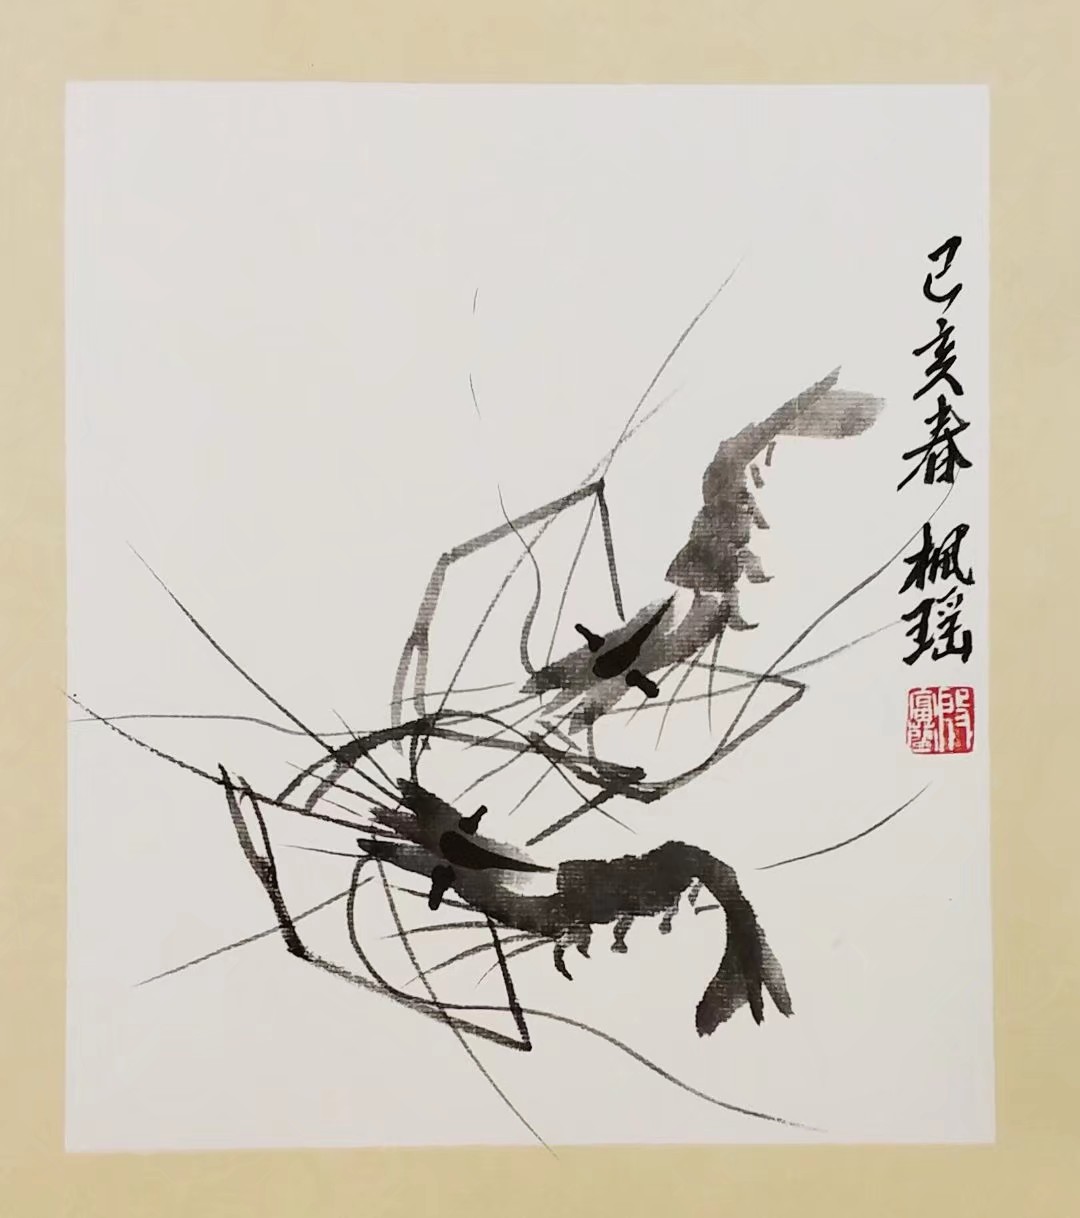 己亥春 枫瑶